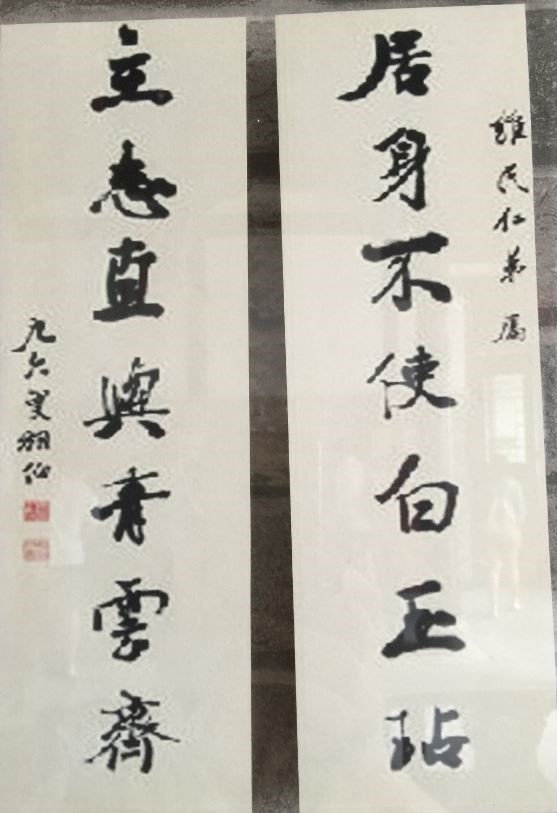 維民仁弟属
居身不使白玉玷
立志直與青雲齊
九六叟